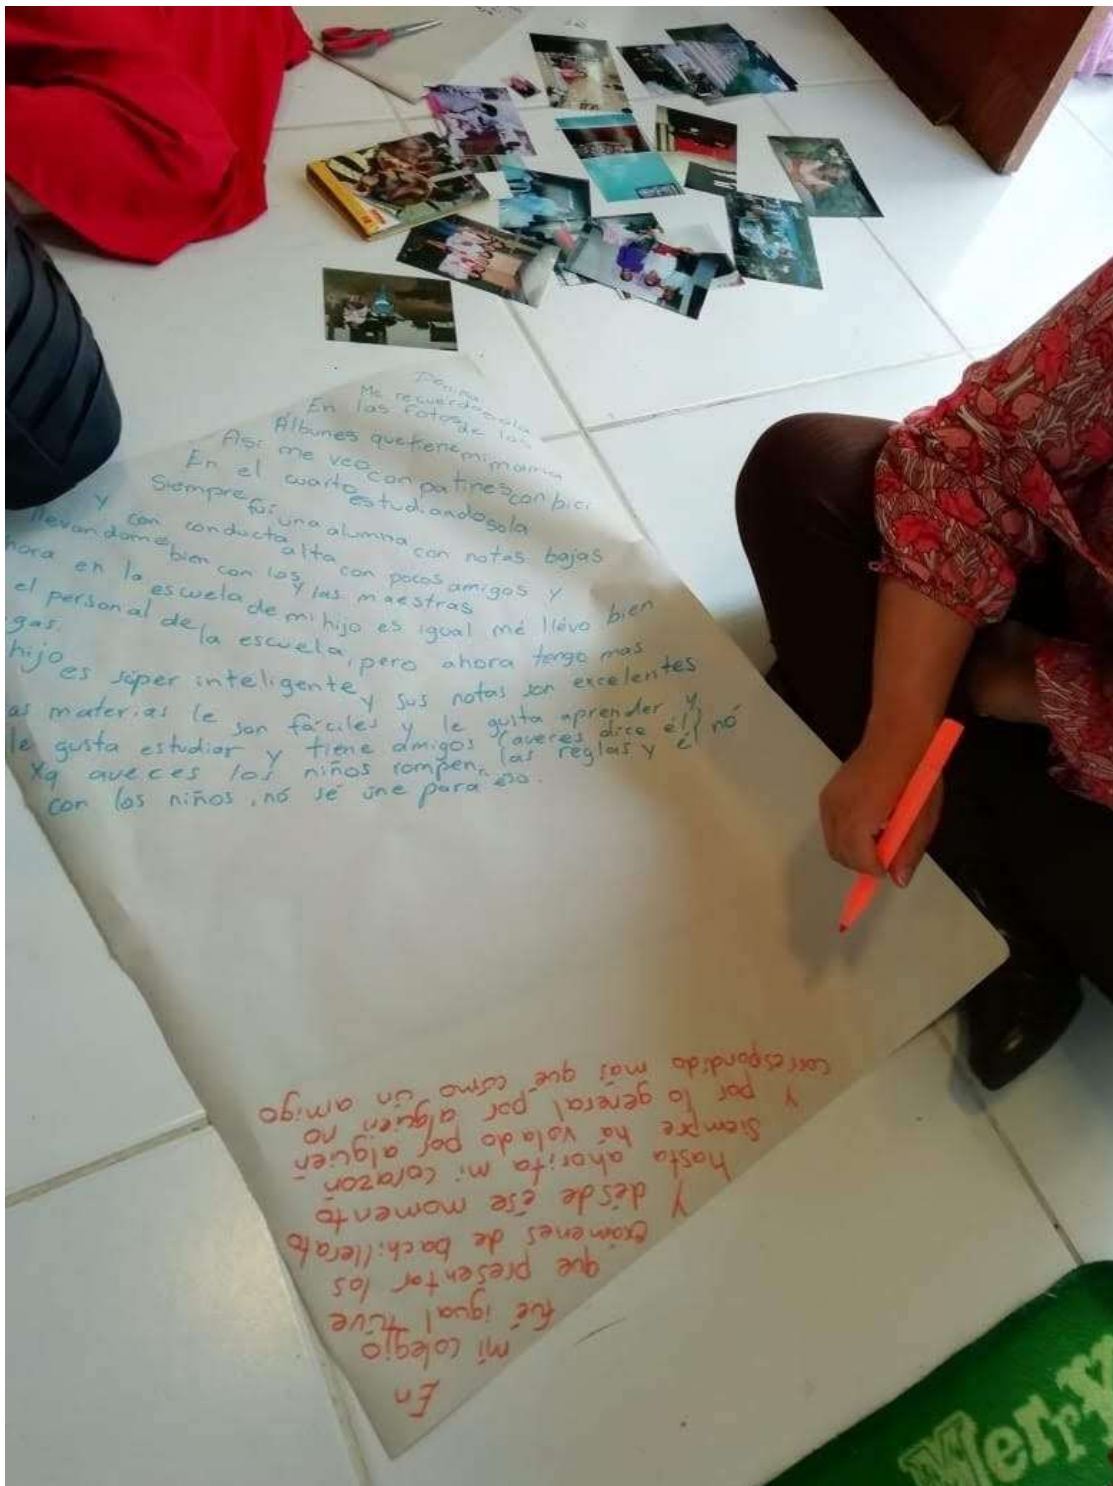 De niña
Me recuerdo sola
En las fotos de los
Álbunes que tiene mi mamá
Así me veo con patines con bici
En el cuarto estudiando sola
Siempre fuí una alumna con notas bajas
y con conducta alta con pocos amigos y
llevandome bien con los y las maestras
hora en la escuela de mi hijo es igual mé llévo bien
el personal de la escuela, pero ahora tengo mas
gas.
hijo es súper inteligente y sus notas son excelentes
as materias le son fáciles y le gusta aprender y
le gusta estudiar y tiene amigos (aveces dice él) nó
Xq aveces los niños rompen las reglas y él
con los niños, nó sé úne para éso.
En
mi colegio
fué igual túve
que presentar los
éxamenes de bachillerato
y désde ése momento
hasta ahorita mi corazón
siempre há volado por alguién
y por lo general por alguién no
correspondido más qué cómo ún amigo
Merry